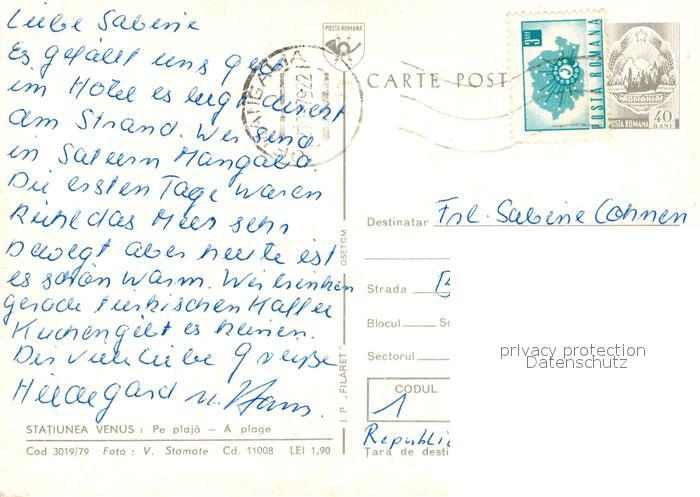 Liebe Sabine
Es gefällt uns gut
im Hotel es liegt direkt
am Strand. Wir sind
in Saturn Mangalia.
Die ersten Tage waren
kühl das Meer sehr
bewegt aber heute ist
es schön warm. Wir trinken
gerade türkischen Kaffee
Kuchen gibt es keinen.
Dir viele liebe Grüße
Hildegard u. Hans.
STAȚIUNEA VENUS : Pe plajă – A plage
Cod 3019/79 Foto : V. Stamate Cd. 11008 LEI 1,90
I. P. „FILARET" OSETCM
POSTA ROMANA
MANGALIA
CARTE POST
3 LEI
POSTA ROMANA
ROMANIA
POSTA ROMANA 40 BANI
Destinatar Frl. Sabine Cohnen
Strada
Blocul
Sectorul
CODUL
1
Republi
Țara de desti
privacy protection
Datenschutz